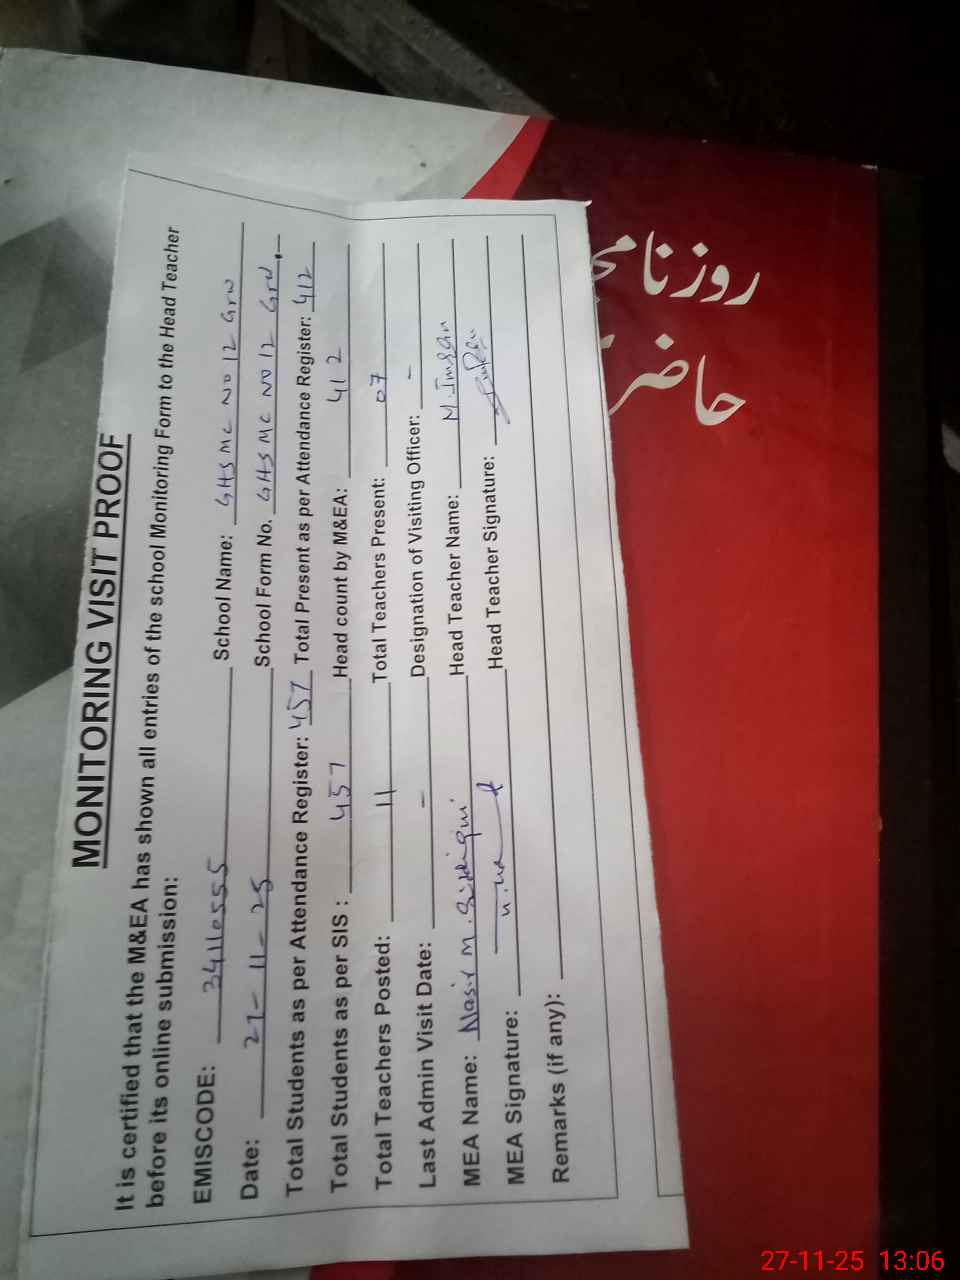 MONITORING VISIT PROOF
It is certified that the M&EA has shown all entries of the school Monitoring Form to the Head Teacher
before its online submission:
EMISCODE: 34110555 School Name: GHS MC NO 12 Grw
Date: 27-11-25 School Form No. GHS MC NO 12 Grw
Total Students as per Attendance Register: 457 Total Present as per Attendance Register: 412
Total Students as per SIS : 457 Head count by M&EA: 412
Total Teachers Posted: 11 Total Teachers Present: 07
Last Admin Visit Date: - Designation of Visiting Officer: -
MEA Name: Nasir M. Siddiqui Head Teacher Name: M. Imran
MEA Signature: Head Teacher Signature:
Remarks (if any):
روزنامچہ
حاضر
27-11-25 13:06